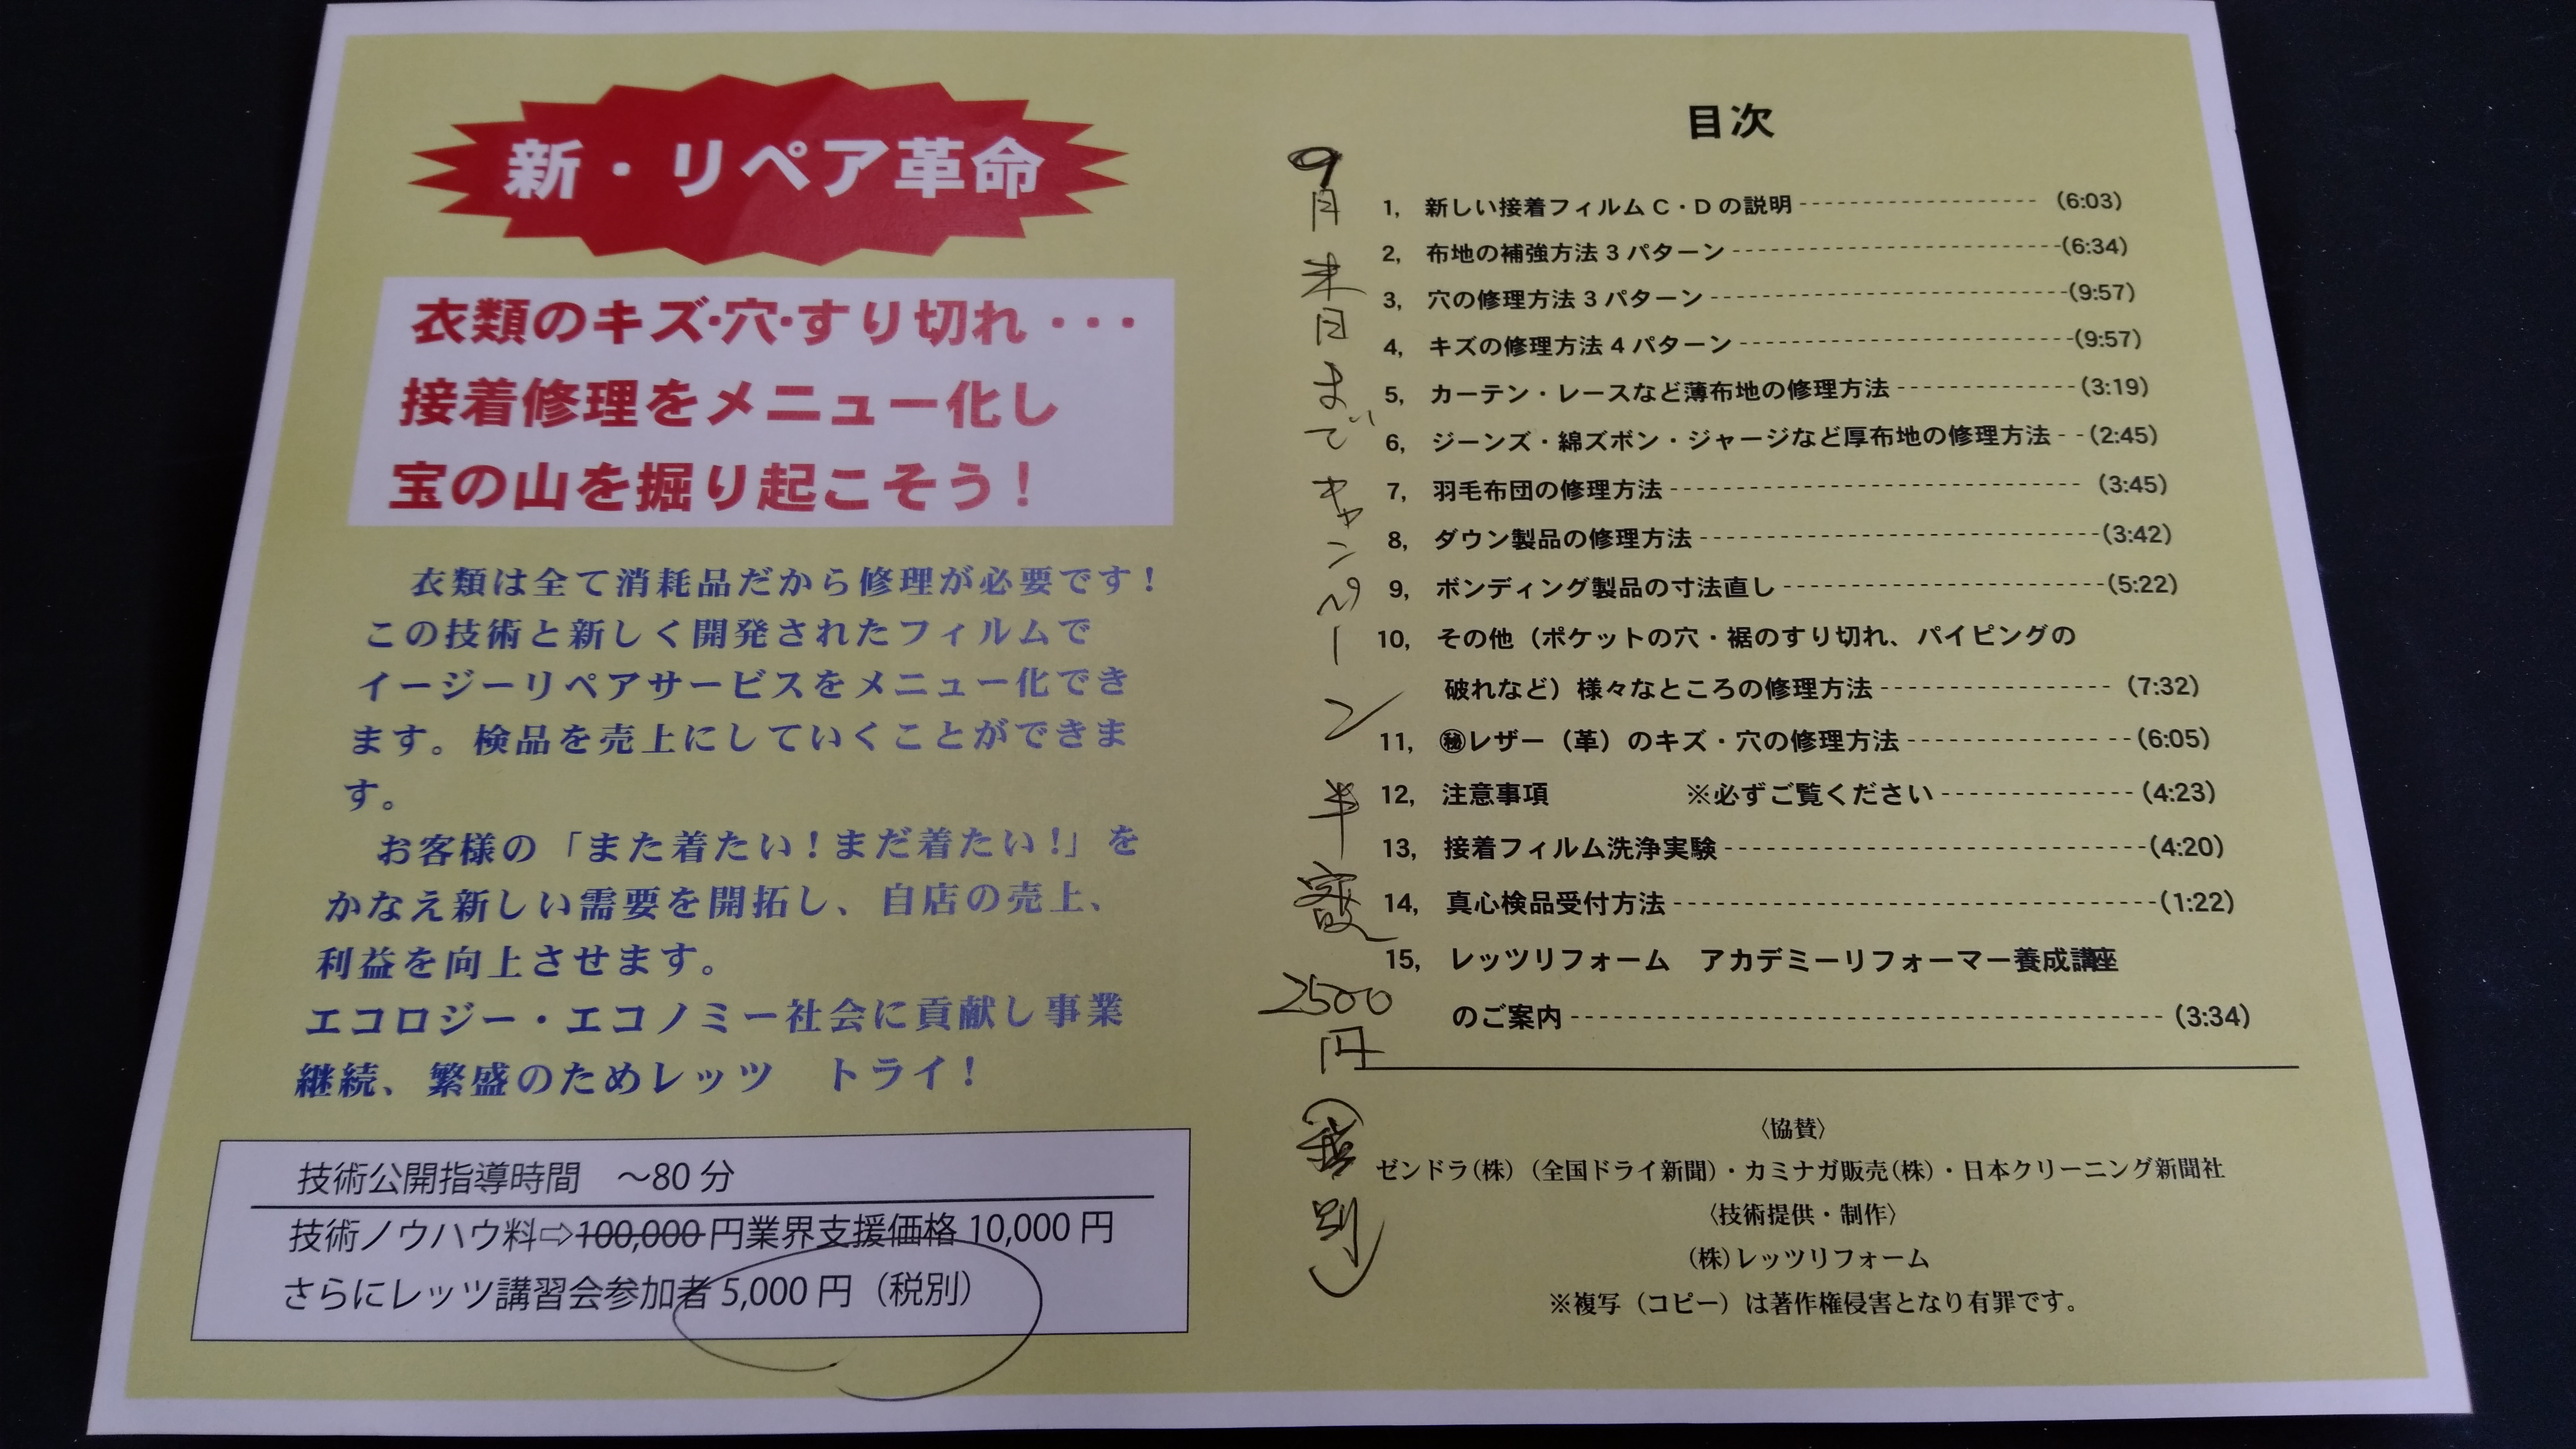 新・リペア革命
衣類のキズ・穴・すり切れ・・・
接着修理をメニュー化し
宝の山を掘り起こそう！
衣類は全て消耗品だから修理が必要です！
この技術と新しく開発されたフィルムで
イージーリペアサービスをメニュー化でき
ます。検品を売上にしていくことができま
す。
お客様の「また着たい！まだ着たい！」を
かなえ新しい需要を開拓し、自店の売上、
利益を向上させます。
エコロジー・エコノミー社会に貢献し事業
継続、繁盛のためレッツ　トライ！
技術公開指導時間　～80 分
技術ノウハウ料⇨100,000 円業界支援価格 10,000 円
さらにレッツ講習会参加者 5,000 円（税別）
9月末日までキャンペーン半額2500円（税別）
目次
1,　新しい接着フィルム C・D の説明 ------------------- (6:03)
2,　布地の補強方法 3 パターン --------------------------(6:34)
3,　穴の修理方法 3 パターン ----------------------------(9:57)
4,　キズの修理方法 4 パターン --------------------------(9:57)
5,　カーテン・レースなど薄布地の修理方法 --------------(3:19)
6,　ジーンズ・綿ズボン・ジャージなど厚布地の修理方法 - -(2:45)
7,　羽毛布団の修理方法 -------------------------------- (3:45)
8,　ダウン製品の修理方法 -------------------------------(3:42)
9,　ボンディング製品の寸法直し -------------------------(5:22)
10,　その他（ポケットの穴・裾のすり切れ、パイピングの
破れなど）様々なところの修理方法 ------------------ (7:32)
11,　㊙レザー（革）のキズ・穴の修理方法 --------------- --(6:05)
12,　注意事項　　　　※必ずご覧ください --------------- (4:23)
13,　接着フィルム洗浄実験 ---------------------------------(4:20)
14,　真心検品受付方法 -------------------------------------(1:22)
15,　レッツリフォーム　アカデミーリフォーマー養成講座
のご案内 --------------------------------------------- (3:34)
〈協賛〉
ゼンドラ(株)（全国ドライ新聞）・カミナガ販売(株)・日本クリーニング新聞社
〈技術提供・制作〉
(株)レッツリフォーム
※複写（コピー）は著作権侵害となり有罪です。